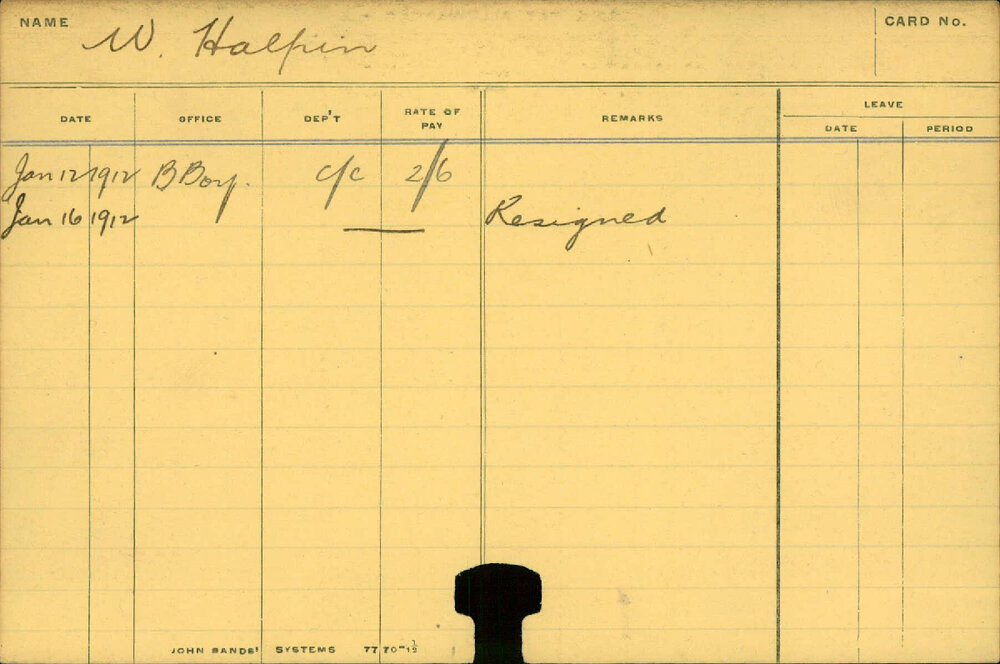 NAME W. Halpin CARD No.
LEAVE
DATE OFFICE DEP'T RATE OF PAY REMARKS DATE PERIOD
Jan 12 1912 B Boy. c/c 2/6
Jan 16 1912 — Resigned
JOHN SANDS' SYSTEMS 7770